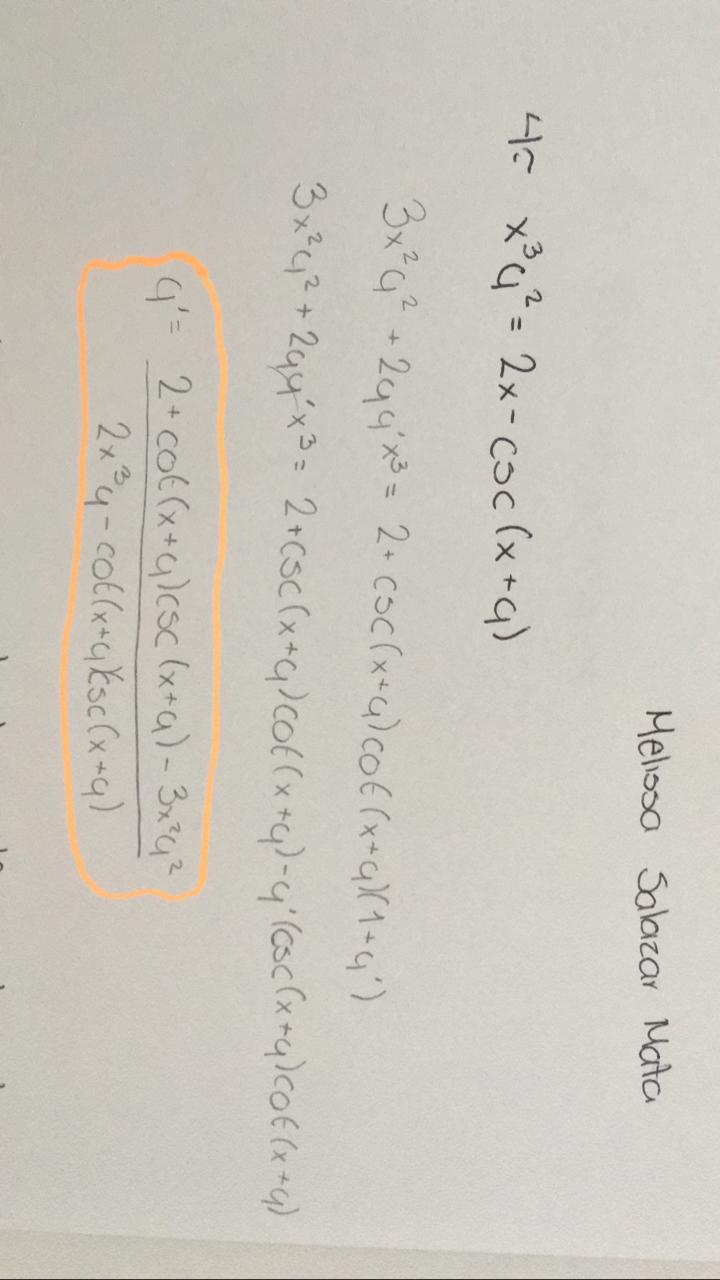 Melissa Salazar Mata
4= x³y² = 2x - csc(x+y)
3x²y² + 2yy'x³ = 2 + csc(x+y)cot(x+y)(1+y')
3x²y² + 2yy'x³ = 2+csc(x+y)cot(x+y)-y'(csc(x+y)cot(x+y)
y' = 2+cot(x+y)csc(x+y) - 3x²y²
2x³y - cot(x+y)csc(x+y)